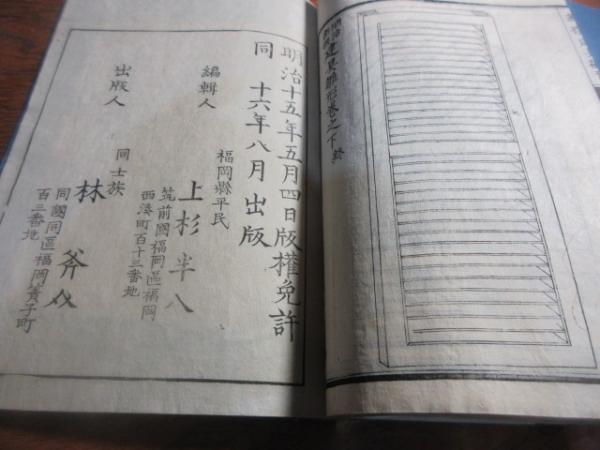 建具雛形巻之下 終
明治十五年五月四日版權免許
同 十六年八月出版
編輯人
福岡縣平民
上杉半八
筑前國福岡區福岡
西湊町百十三番地
出版人
同士族
林 斧
同國同區福岡簀子町
百三番地